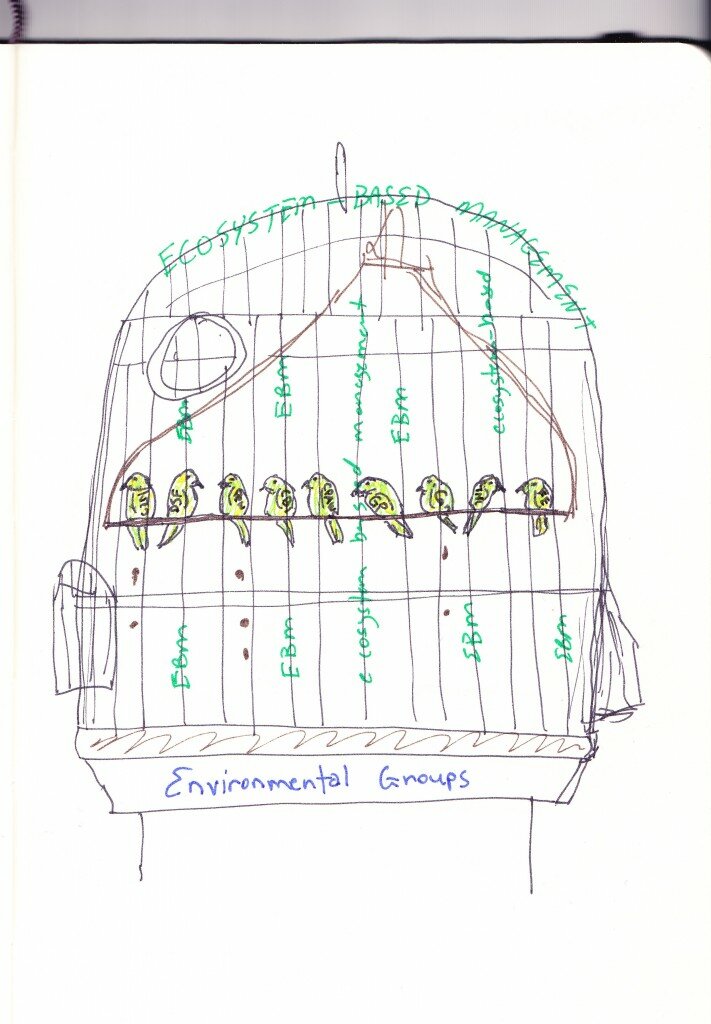 ECOSYSTEM-BASED MANAGEMENT
EBM
EBM
ecosystem based management
EBM
ecosystem-based
EBM
EBM
EBM
EBM
Environmental Groups